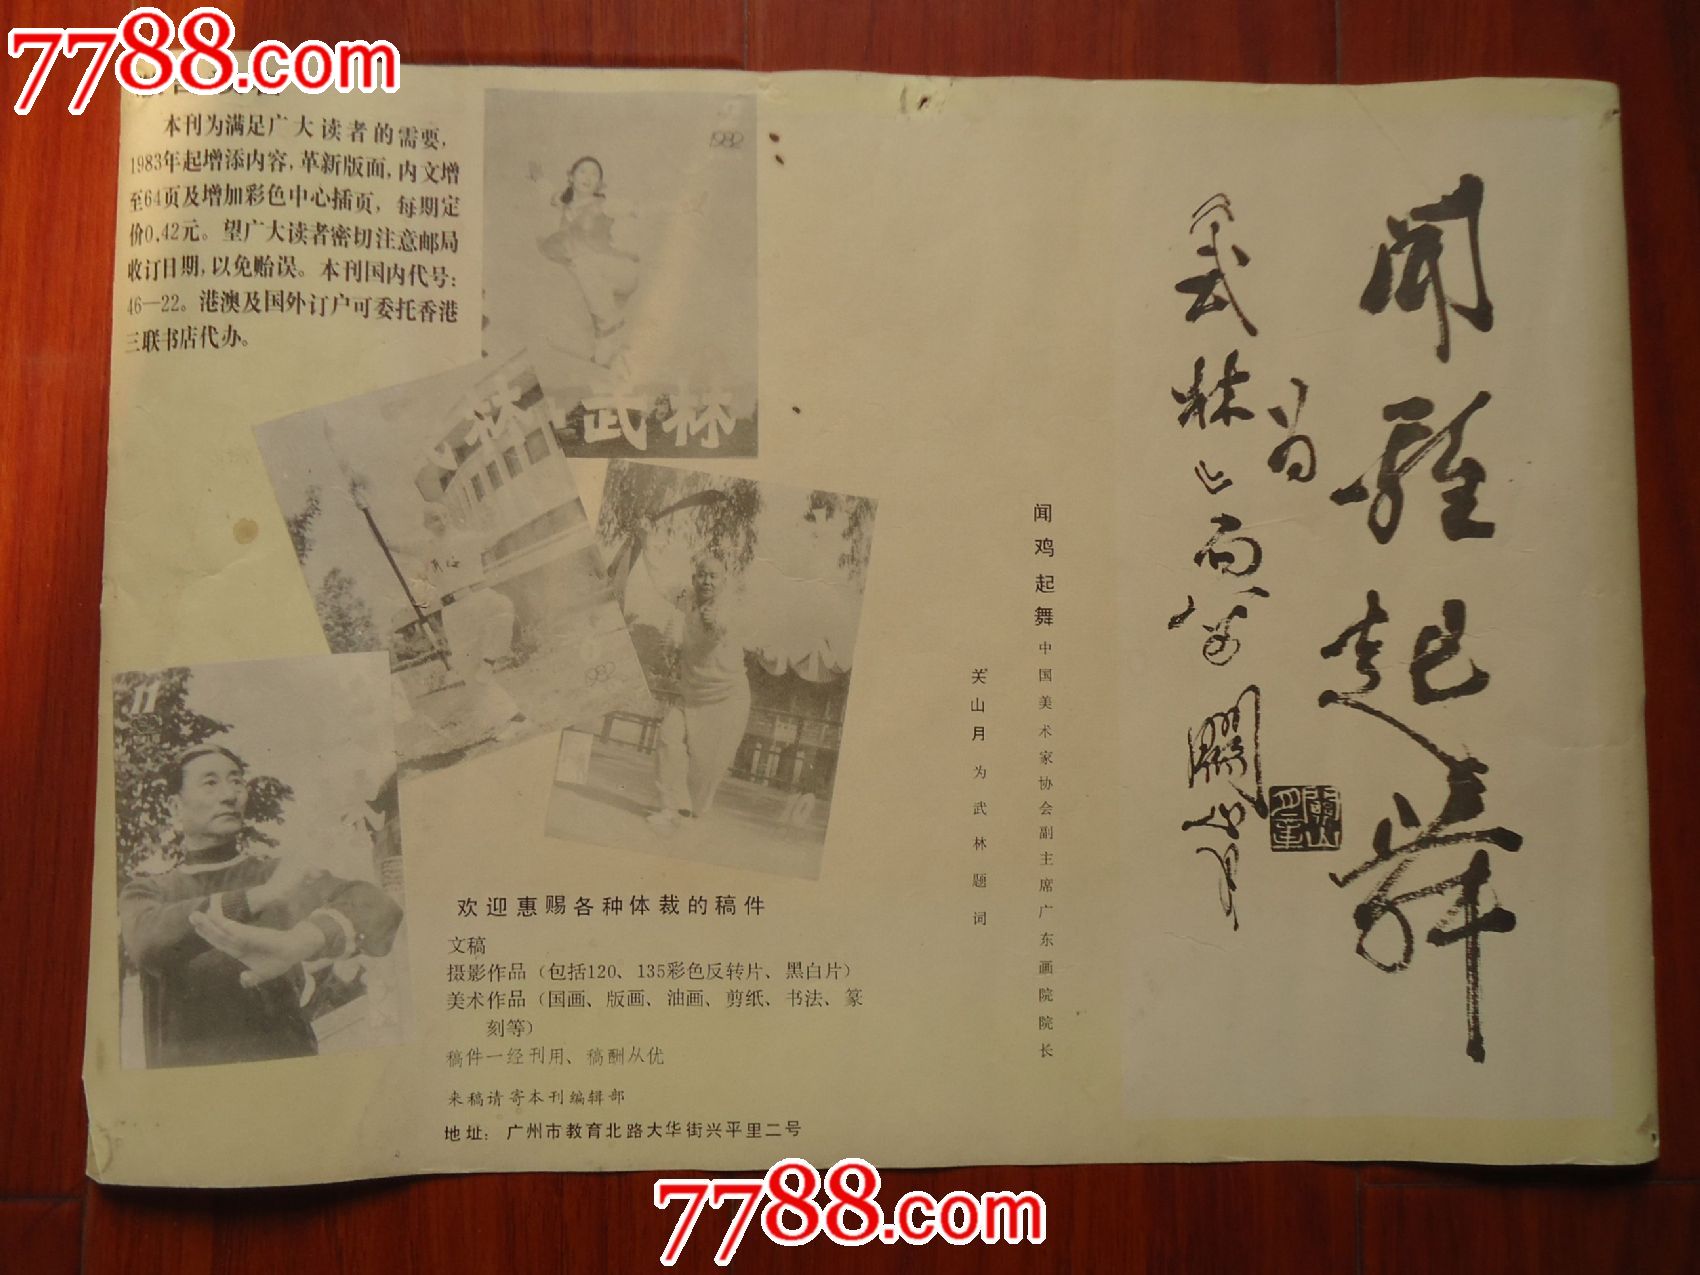 7788.com
本刊为满足广大读者的需要,
1983年起增添内容,革新版面,内文增
至64页及增加彩色中心插页,每期定
价0.42元。望广大读者密切注意邮局
收订日期,以免贻误。本刊国内代号:
46—22。港澳及国外订户可委托香港
三联书店代办。
1982
武林
林
1982
11
10
欢迎惠赐各种体裁的稿件
文稿
摄影作品(包括120、135彩色反转片、黑白片)
美术作品(国画、版画、油画、剪纸、书法、篆
刻等)
稿件一经刊用、稿酬从优
来稿请寄本刊编辑部
地址:广州市教育北路大华街兴平里二号
闻鸡起舞 中国美术家协会副主席广东画院院长
关山月 为武林题词
聞雞起舞
为
《武林》而写 關山月
關山月筆
7788.com